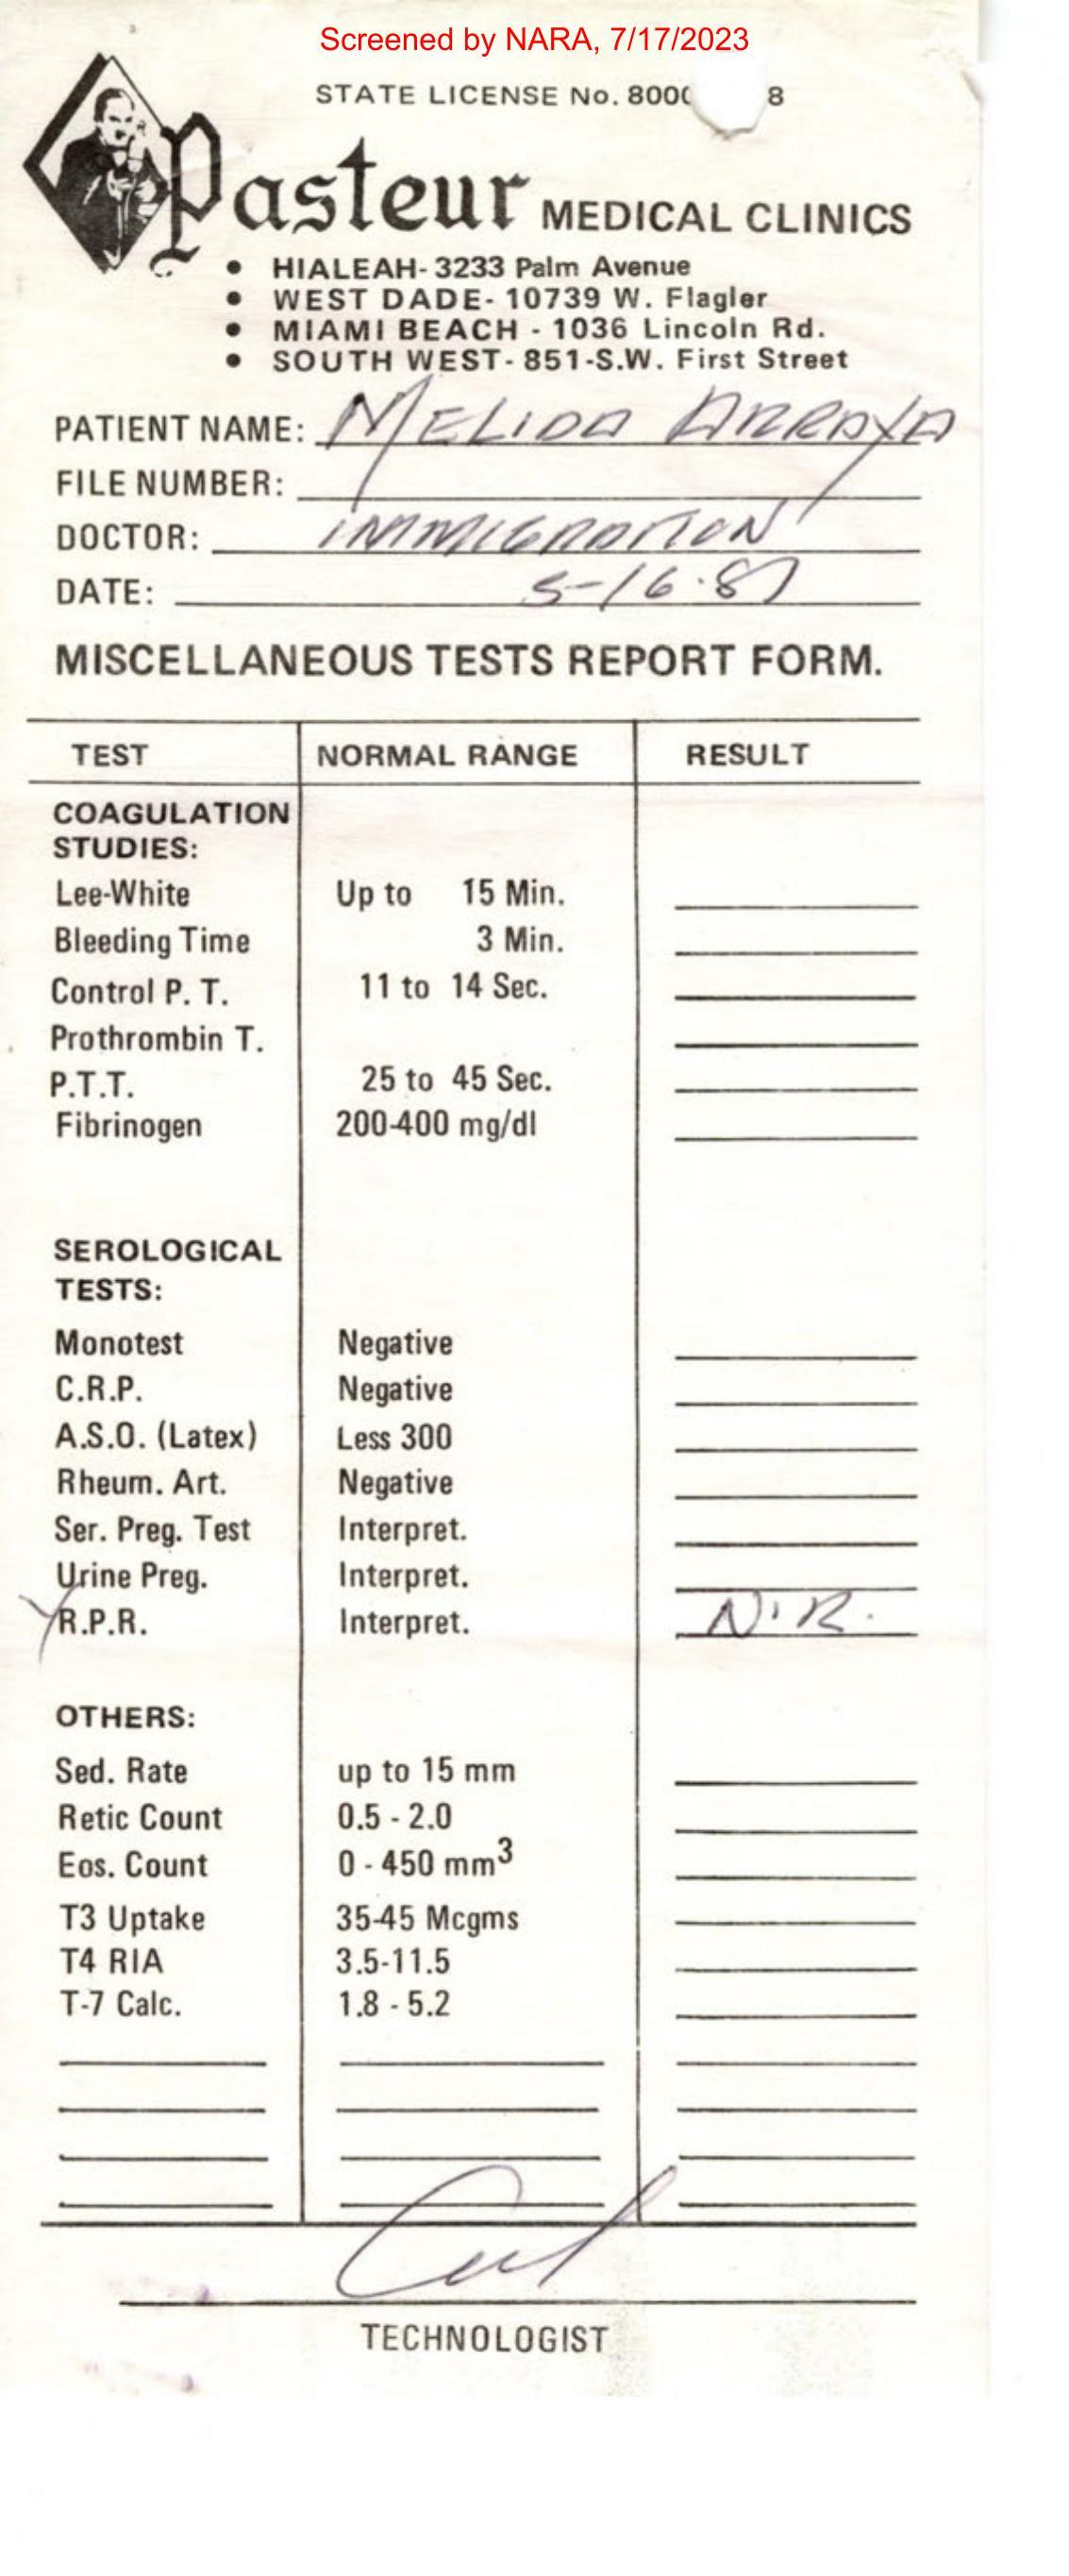 Screened by NARA, 7/17/2023
STATE LICENSE No. 800 8
Pasteur MEDICAL CLINICS
• HIALEAH- 3233 Palm Avenue
• WEST DADE- 10739 W. Flagler
• MIAMI BEACH - 1036 Lincoln Rd.
• SOUTH WEST- 851-S.W. First Street
PATIENT NAME: MELIDA ARRAYA
FILE NUMBER:
DOCTOR: IMMIGRATION
DATE: 5-16-87
MISCELLANEOUS TESTS REPORT FORM.
TEST NORMAL RANGE RESULT
COAGULATION
STUDIES:
Lee-White Up to 15 Min.
Bleeding Time 3 Min.
Control P. T. 11 to 14 Sec.
Prothrombin T.
P.T.T. 25 to 45 Sec.
Fibrinogen 200-400 mg/dl
SEROLOGICAL
TESTS:
Monotest Negative
C.R.P. Negative
A.S.O. (Latex) Less 300
Rheum. Art. Negative
Ser. Preg. Test Interpret.
Urine Preg. Interpret.
R.P.R. Interpret. N.R.
OTHERS:
Sed. Rate up to 15 mm
Retic Count 0.5 - 2.0
Eos. Count 0 - 450 mm3
T3 Uptake 35-45 Mcgms
T4 RIA 3.5-11.5
T-7 Calc. 1.8 - 5.2
TECHNOLOGIST